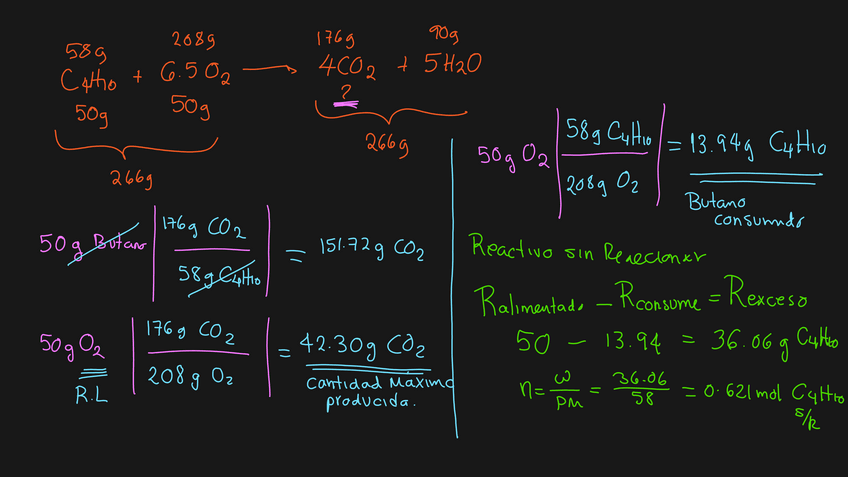 58g 208g 176g 90g
C4H10 + 6.5 O2 → 4CO2 + 5H2O
50g 50g ?
266g 266g
50g Butano | 176g CO2 / 58g C4H10 | = 151.72g CO2
50g O2 | 176g CO2 / 208g O2 | = 42.30g CO2
R.L
Cantidad Maxima
producida.
50g O2 | 58g C4H10 / 208g O2 | = 13.94g C4H10
Butano
consumido
Reactivo sin Reaccionar
Ralimentado – Rconsume = Rexceso
50 – 13.94 = 36.06 g C4H10
n = w/PM = 36.06/58 = 0.621 mol C4H10
s/R